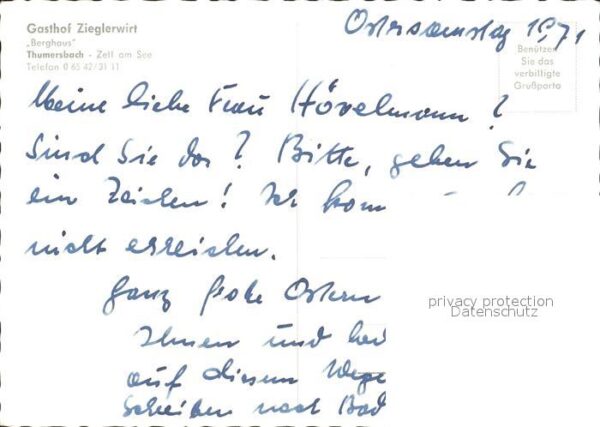 Gasthof Zieglerwirt
„Berghaus"
Thumersbach - Zell am See
Telefon 0 65 42/31 11
Ostersamstag 1971
Benützen
Sie das
verbilligte
Grußporto
Meine liebe Frau Hövelmann?
Sind Sie da? Bitte, geben Sie
ein Zeichen! Ich kom
nicht erreichen.
Ganz frohe Ostern
Ihnen und
auf diesem Wege
Schreiben nach Bad
privacy protection
Datenschutz